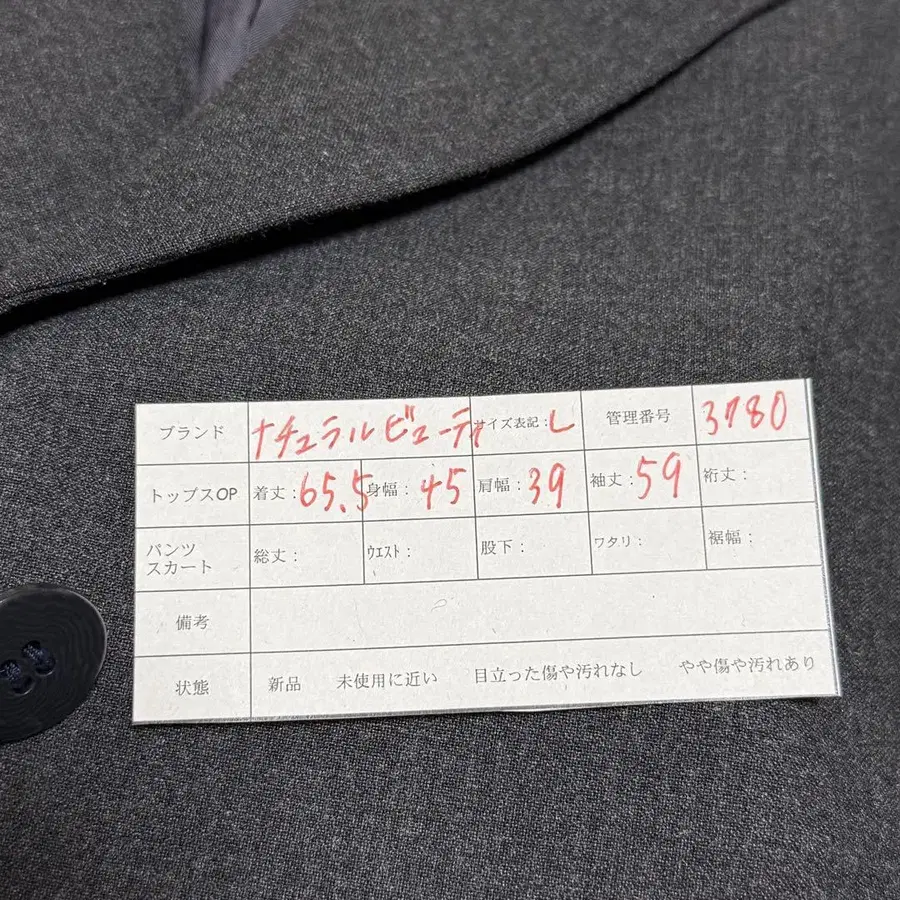 ブランド ナチュラルビューティ サイズ表記：L 管理番号 3780
トップスOP 着丈：65.5 身幅：45 肩幅：39 袖丈：59 裄丈：
パンツ
スカート 総丈： ウエスト： 股下： ワタリ： 裾幅：
備考
状態 新品 未使用に近い 目立った傷や汚れなし やや傷や汚れあり